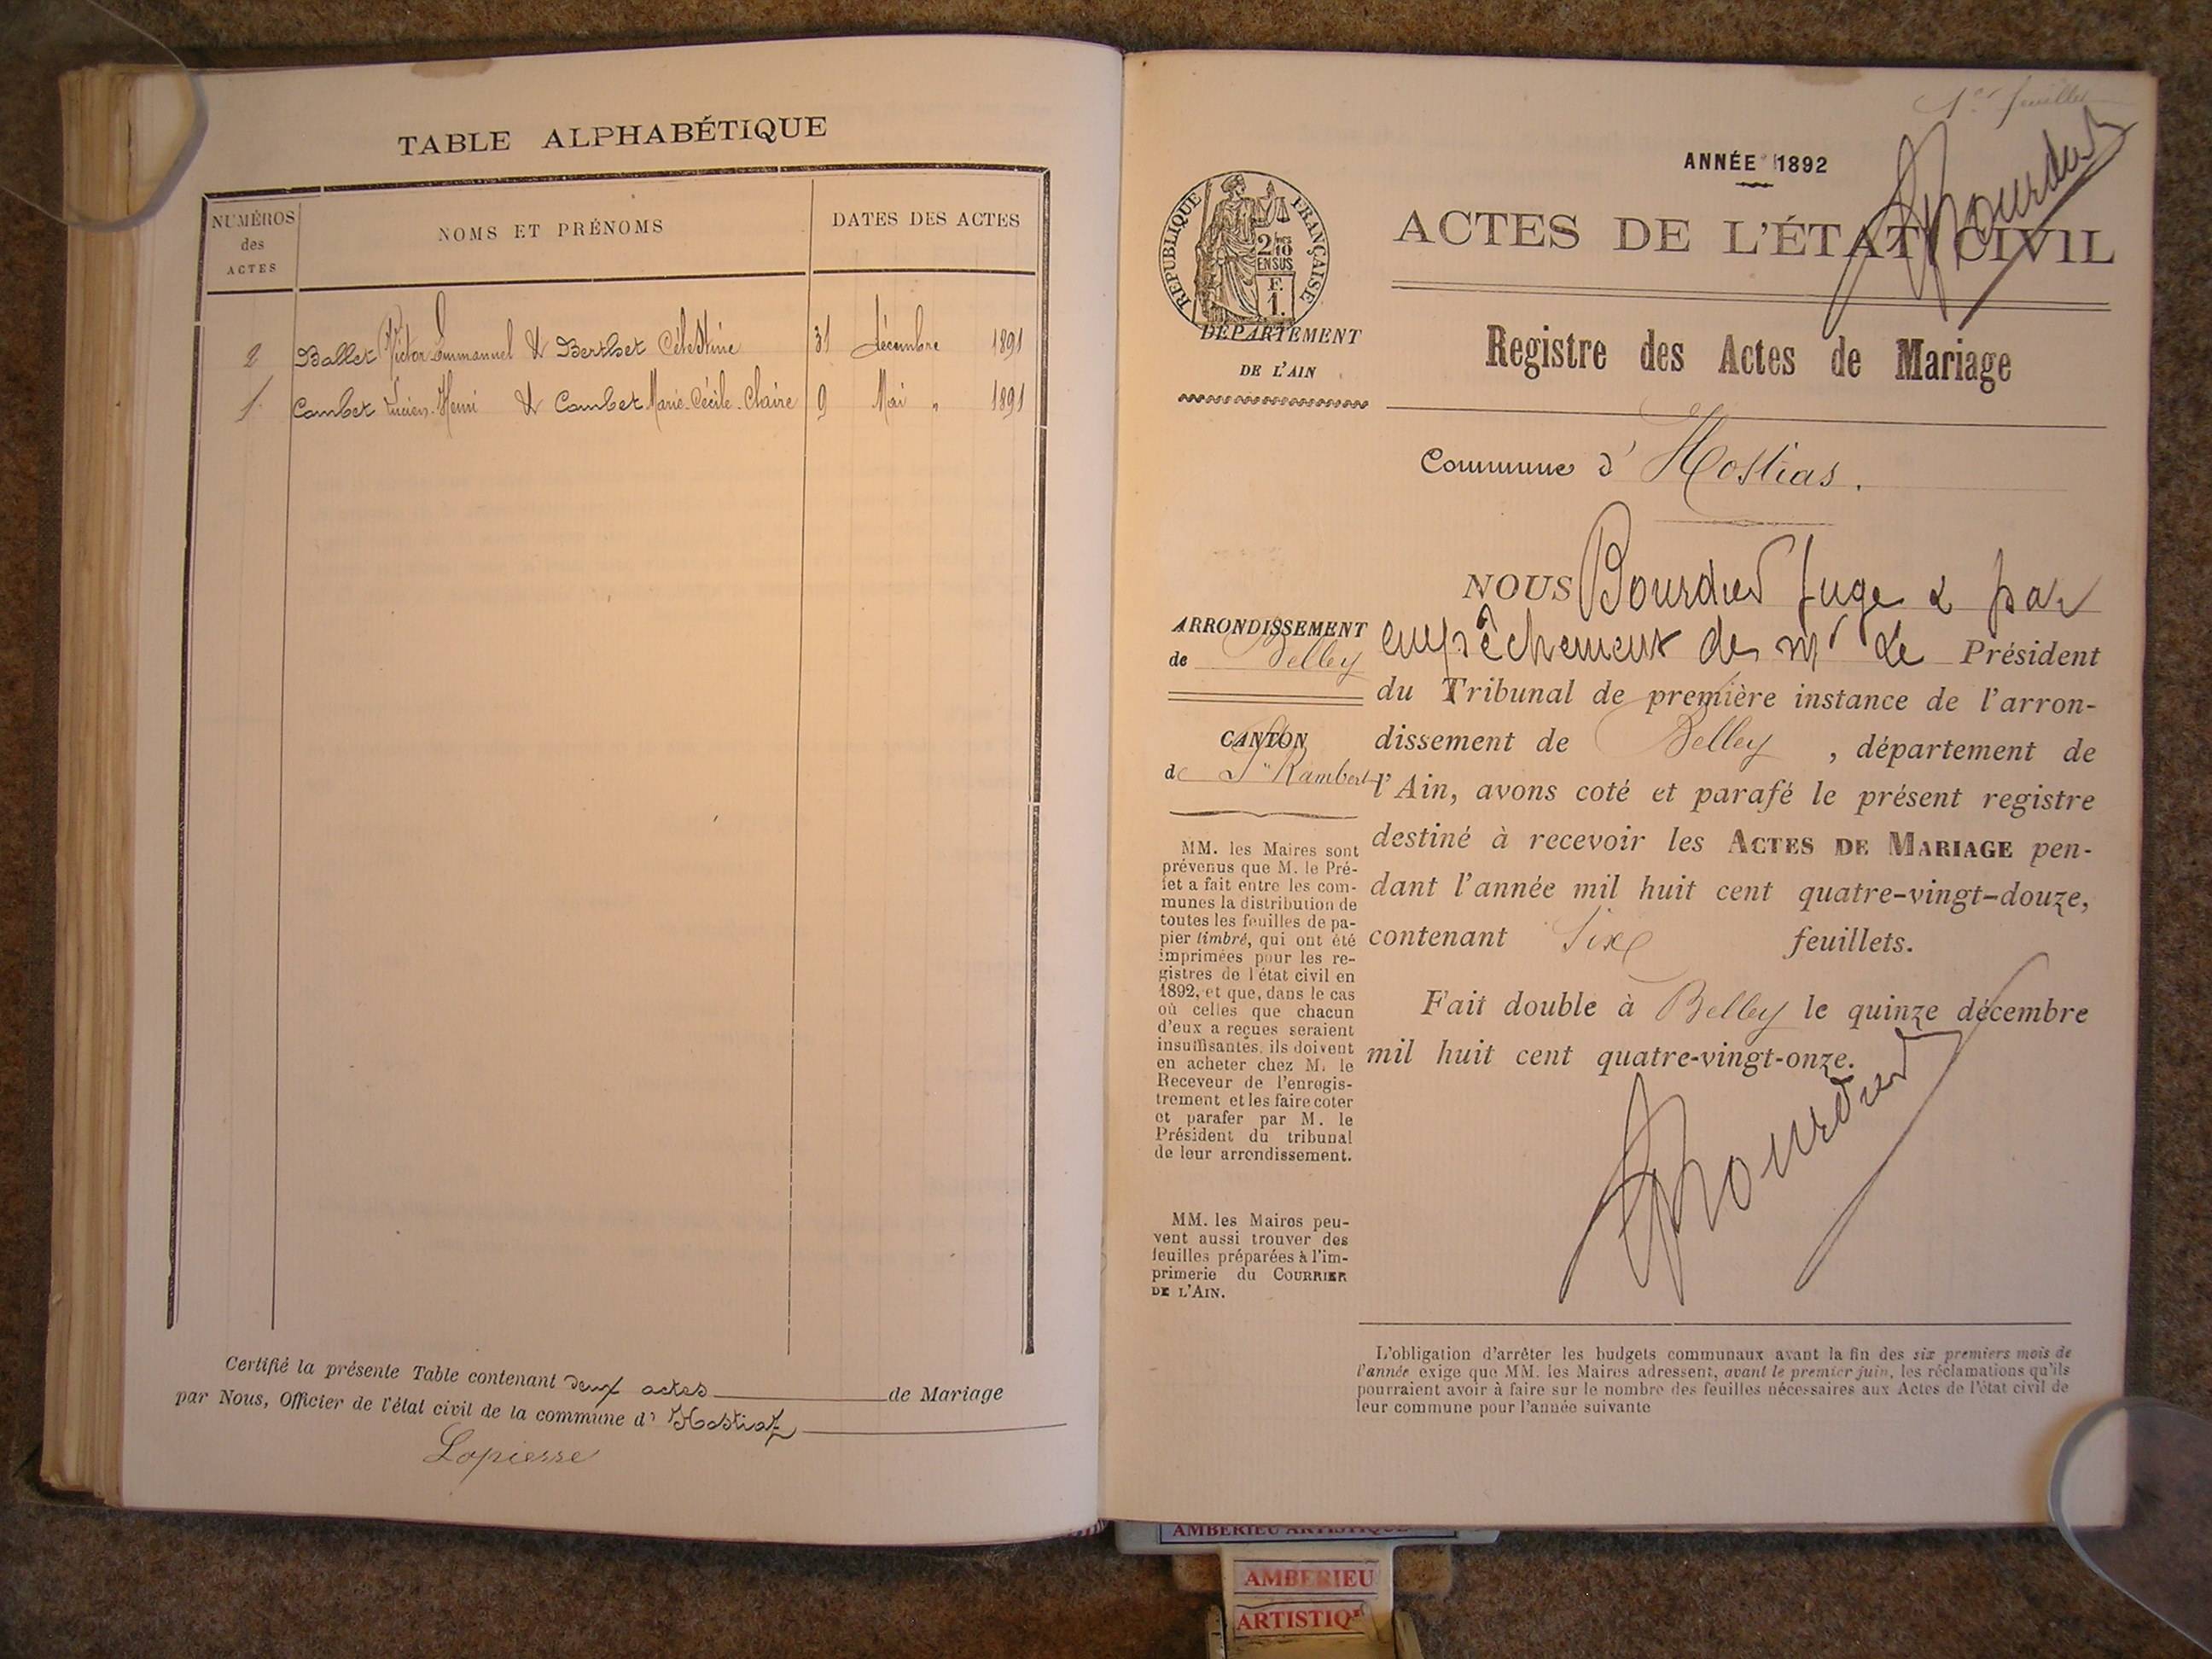 TABLE ALPHABÉTIQUE
NUMÉROS des ACTES
NOMS ET PRÉNOMS
DATES DES ACTES
2 Ballet Victor Emmanuel & Berthet Célestine 31 décembre 1891
1 Combet Lucien-Henri & Combet Marie-Cécile-Claire 9 Mai " 1891
Certifié la présente Table contenant deux actes de Mariage
par Nous, Officier de l'état civil de la commune d' Hostiaz
Lapierre
1er feuillet
ANNÉE 1892
Bourdier
RÉPUBLIQUE FRANÇAISE
2/10 EN SUS
F. 1.
ACTES DE L'ÉTAT CIVIL
DÉPARTEMENT
DE L'AIN
Registre des Actes de Mariage
Commune d' Hostias.
ARRONDISSEMENT
de Belley
CANTON
de St Rambert
MM. les Maires sont
prévenus que M. le Pré-
fet a fait entre les com-
munes la distribution de
toutes les feuilles de pa-
pier timbré, qui ont été
imprimées pour les re-
gistres de l'état civil en
1892, et que, dans le cas
où celles que chacun
d'eux a reçues seraient
insuffisantes, ils doivent
en acheter chez M. le
Receveur de l'enregis-
trement et les faire coter
et parafer par M. le
Président du tribunal
de leur arrondissement.
MM. les Maires peu-
vent aussi trouver des
feuilles préparées à l'im-
primerie du COURRIER
DE L'AIN.
NOUS Bourdier Juge & par
empêchement de Mr Le Président
du Tribunal de première instance de l'arron-
dissement de Belley, département de
l'Ain, avons coté et parafé le présent registre
destiné à recevoir les ACTES DE MARIAGE pen-
dant l'année mil huit cent quatre-vingt-douze,
contenant Six feuillets.
Fait double à Belley le quinze décembre
mil huit cent quatre-vingt-onze.
Bourdier
L'obligation d'arrêter les budgets communaux avant la fin des six premiers mois de
l'année exige que MM. les Maires adressent, avant le premier juin, les réclamations qu'ils
pourraient avoir à faire sur le nombre des feuilles nécessaires aux Actes de l'état civil de
leur commune pour l'année suivante
AMBERIEU ARTISTIQUE
AMBERIEU
ARTISTIQ